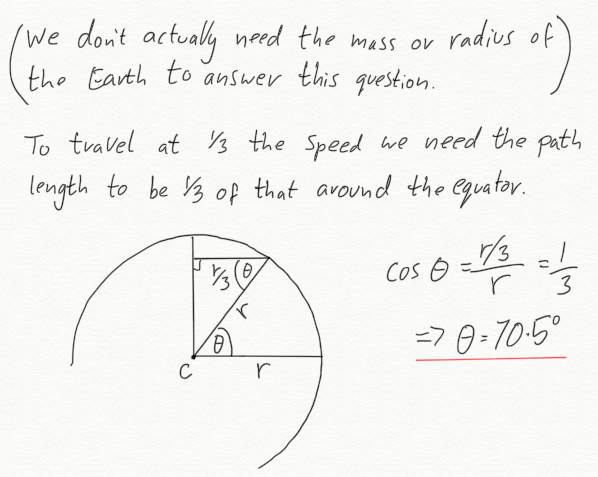 (We don't actually need the mass or radius of
the Earth to answer this question.)
To travel at 1/3 the speed we need the path
length to be 1/3 of that around the equator.
r/3 θ
r
θ
C r
cos θ = r/3 / r = 1/3
=> θ = 70.5°